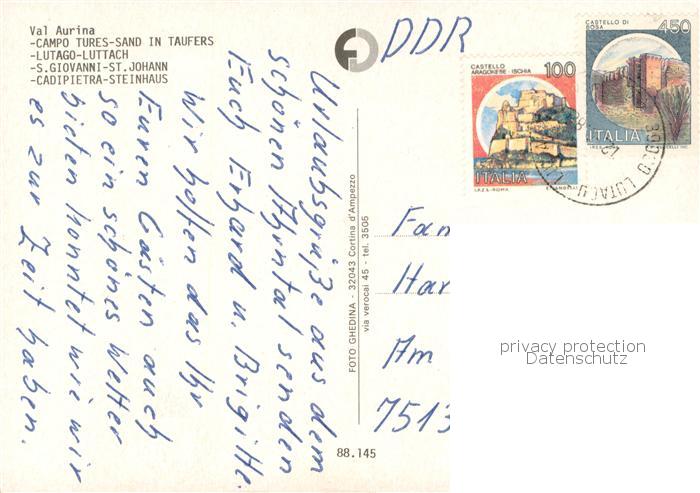 Val Aurina
-CAMPO TURES-SAND IN TAUFERS
-LUTAGO-LUTTACH
-S.GIOVANNI-ST.JOHANN
-CADIPIETRA-STEINHAUS
DDR
CASTELLO
ARAGONESE - ISCHIA
100
ITALIA
I.P.Z.S.-ROMA
CASTELLO DI
BOSA
450
ITALIA
LUTAGO
Urlaubsgrüße aus dem
schönen Ahrntal senden
Euch Erhard u. Brigitte.
Wir hoffen das Ihr
Euren Gästen auch
so ein schönes Wetter
bieten konntet wie wir
es zur Zeit haben.
FOTO GHEDINA - 32043 Cortina d'Ampezzo
via verocai 45 - tel. 3505
Fam
Har
Am
7513
88.145
privacy protection
Datenschutz